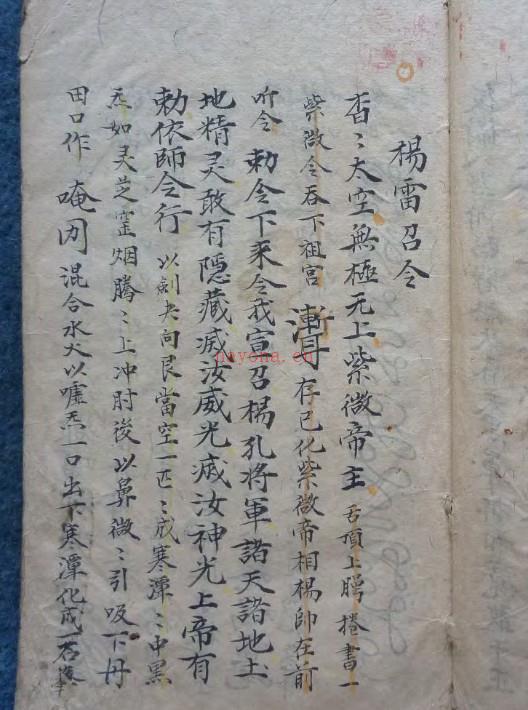 楊雷召令
杳〻太空無極无上紫微帝主 舌頂上腭捲書一
紫微令吞下祖宮 存已化紫微帝相楊帥在前
听令 勅令下来令我宣召楊孔将軍諸天諸地土
地精灵敢有隱藏滅汝威光滅汝神光上帝有
勅依師令行 以剣夬向艮當空一匹〻成寒潭〻中黑
炁如灵芝雲烟騰〻上冲肘後以鼻微〻引吸下丹
田口作 唵 混合水火以嘘炁一口出下寒潭化成一石
nayona.cn